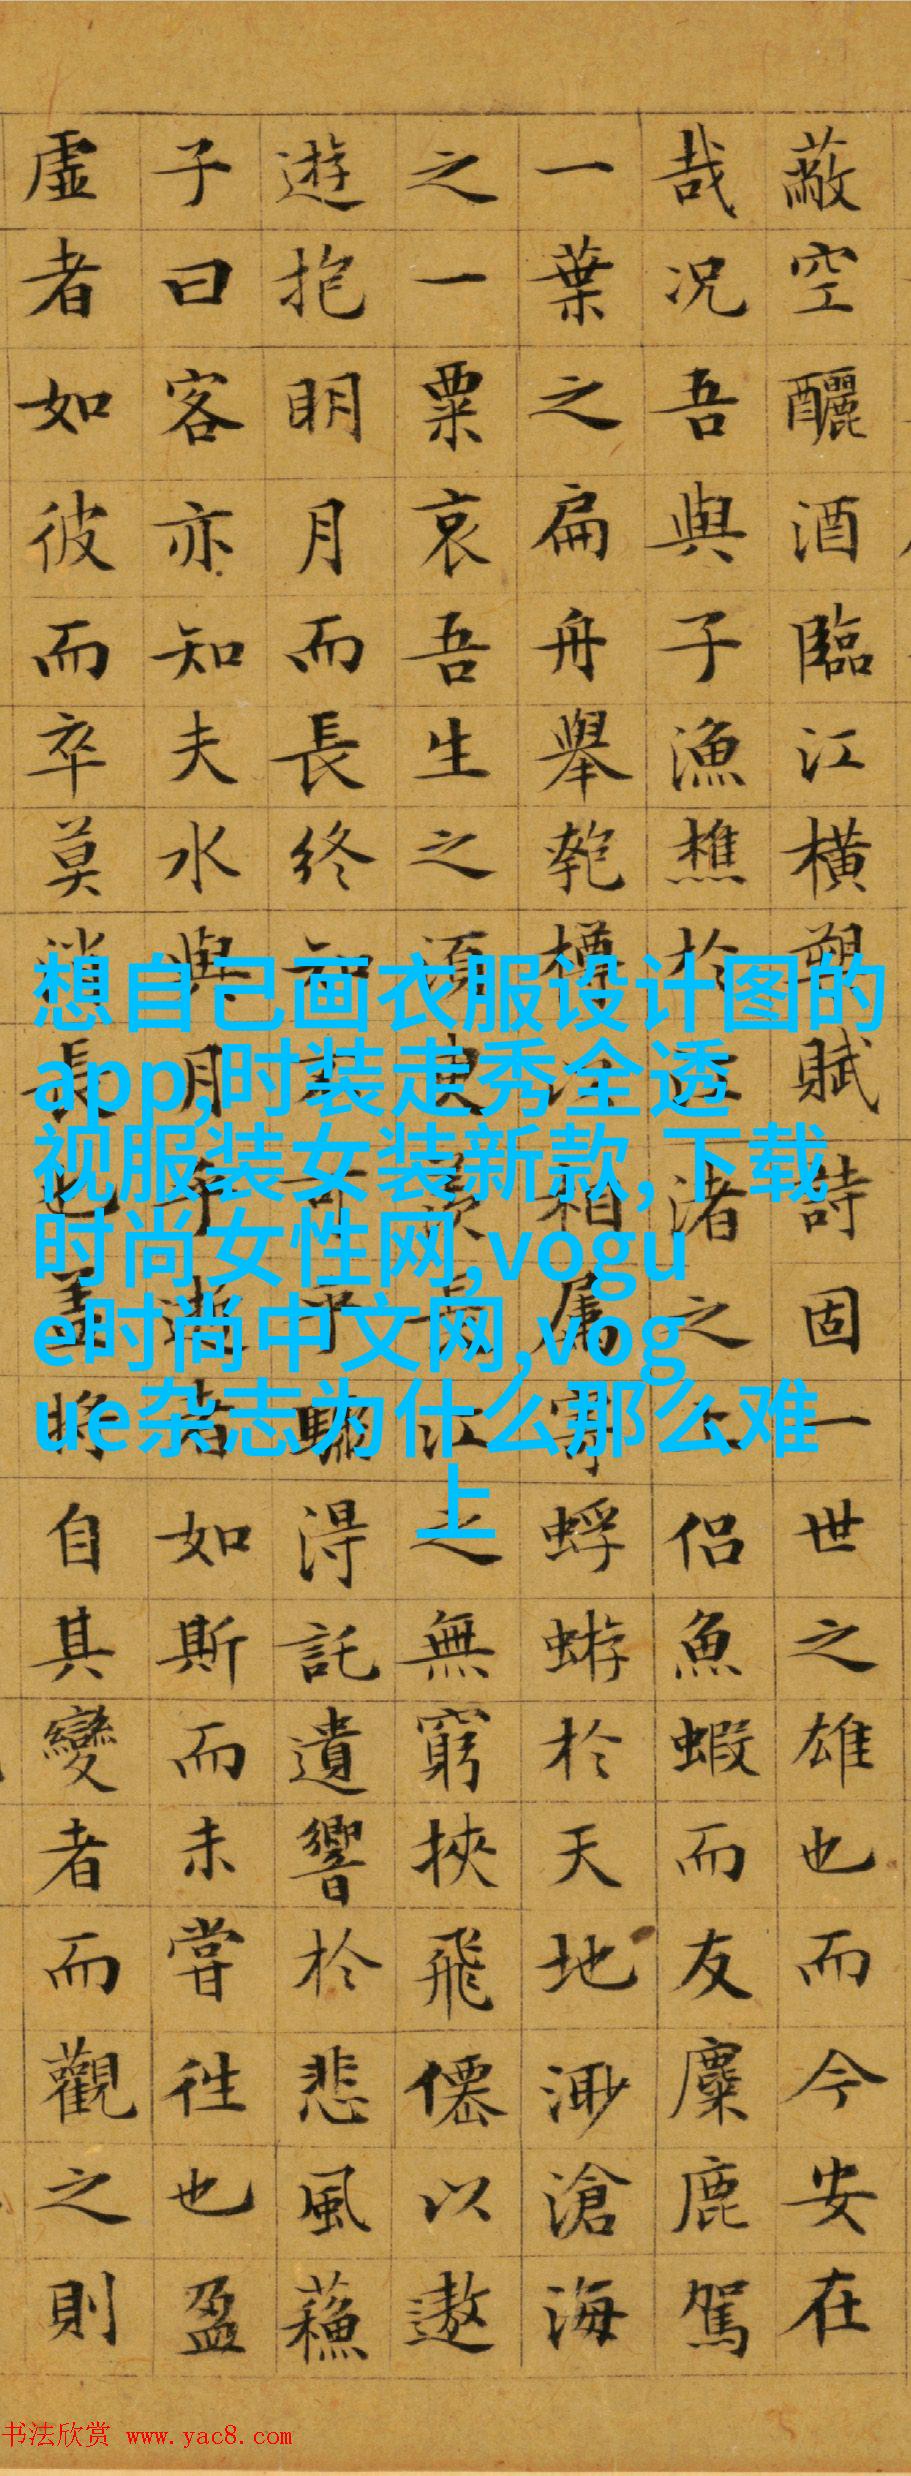 蔽空釃酒臨江橫槊賦詩固一世之雄也而今安在
哉况吾與子漁樵於江渚之上侶魚蝦而友麋鹿駕
一葉之扁舟舉匏樽以相屬寄蜉蝣於天地渺滄海
之一粟哀吾生之須臾羨長江之無窮挾飛僊以遨
遊抱明月而長終知不可乎驟得託遺響於悲風蘓
子曰客亦知夫水與月乎逝者如斯而未嘗往也盈
虛者如彼而卒莫消長也盖將自其變者而觀之則
想自己画衣服设计图的
app,时装走秀全透
视服装女装新款,下载
时尚女性网,vogu
e时尚中文网,vog
ue杂志为什么那么难
上
书法欣赏 www.yac8.com